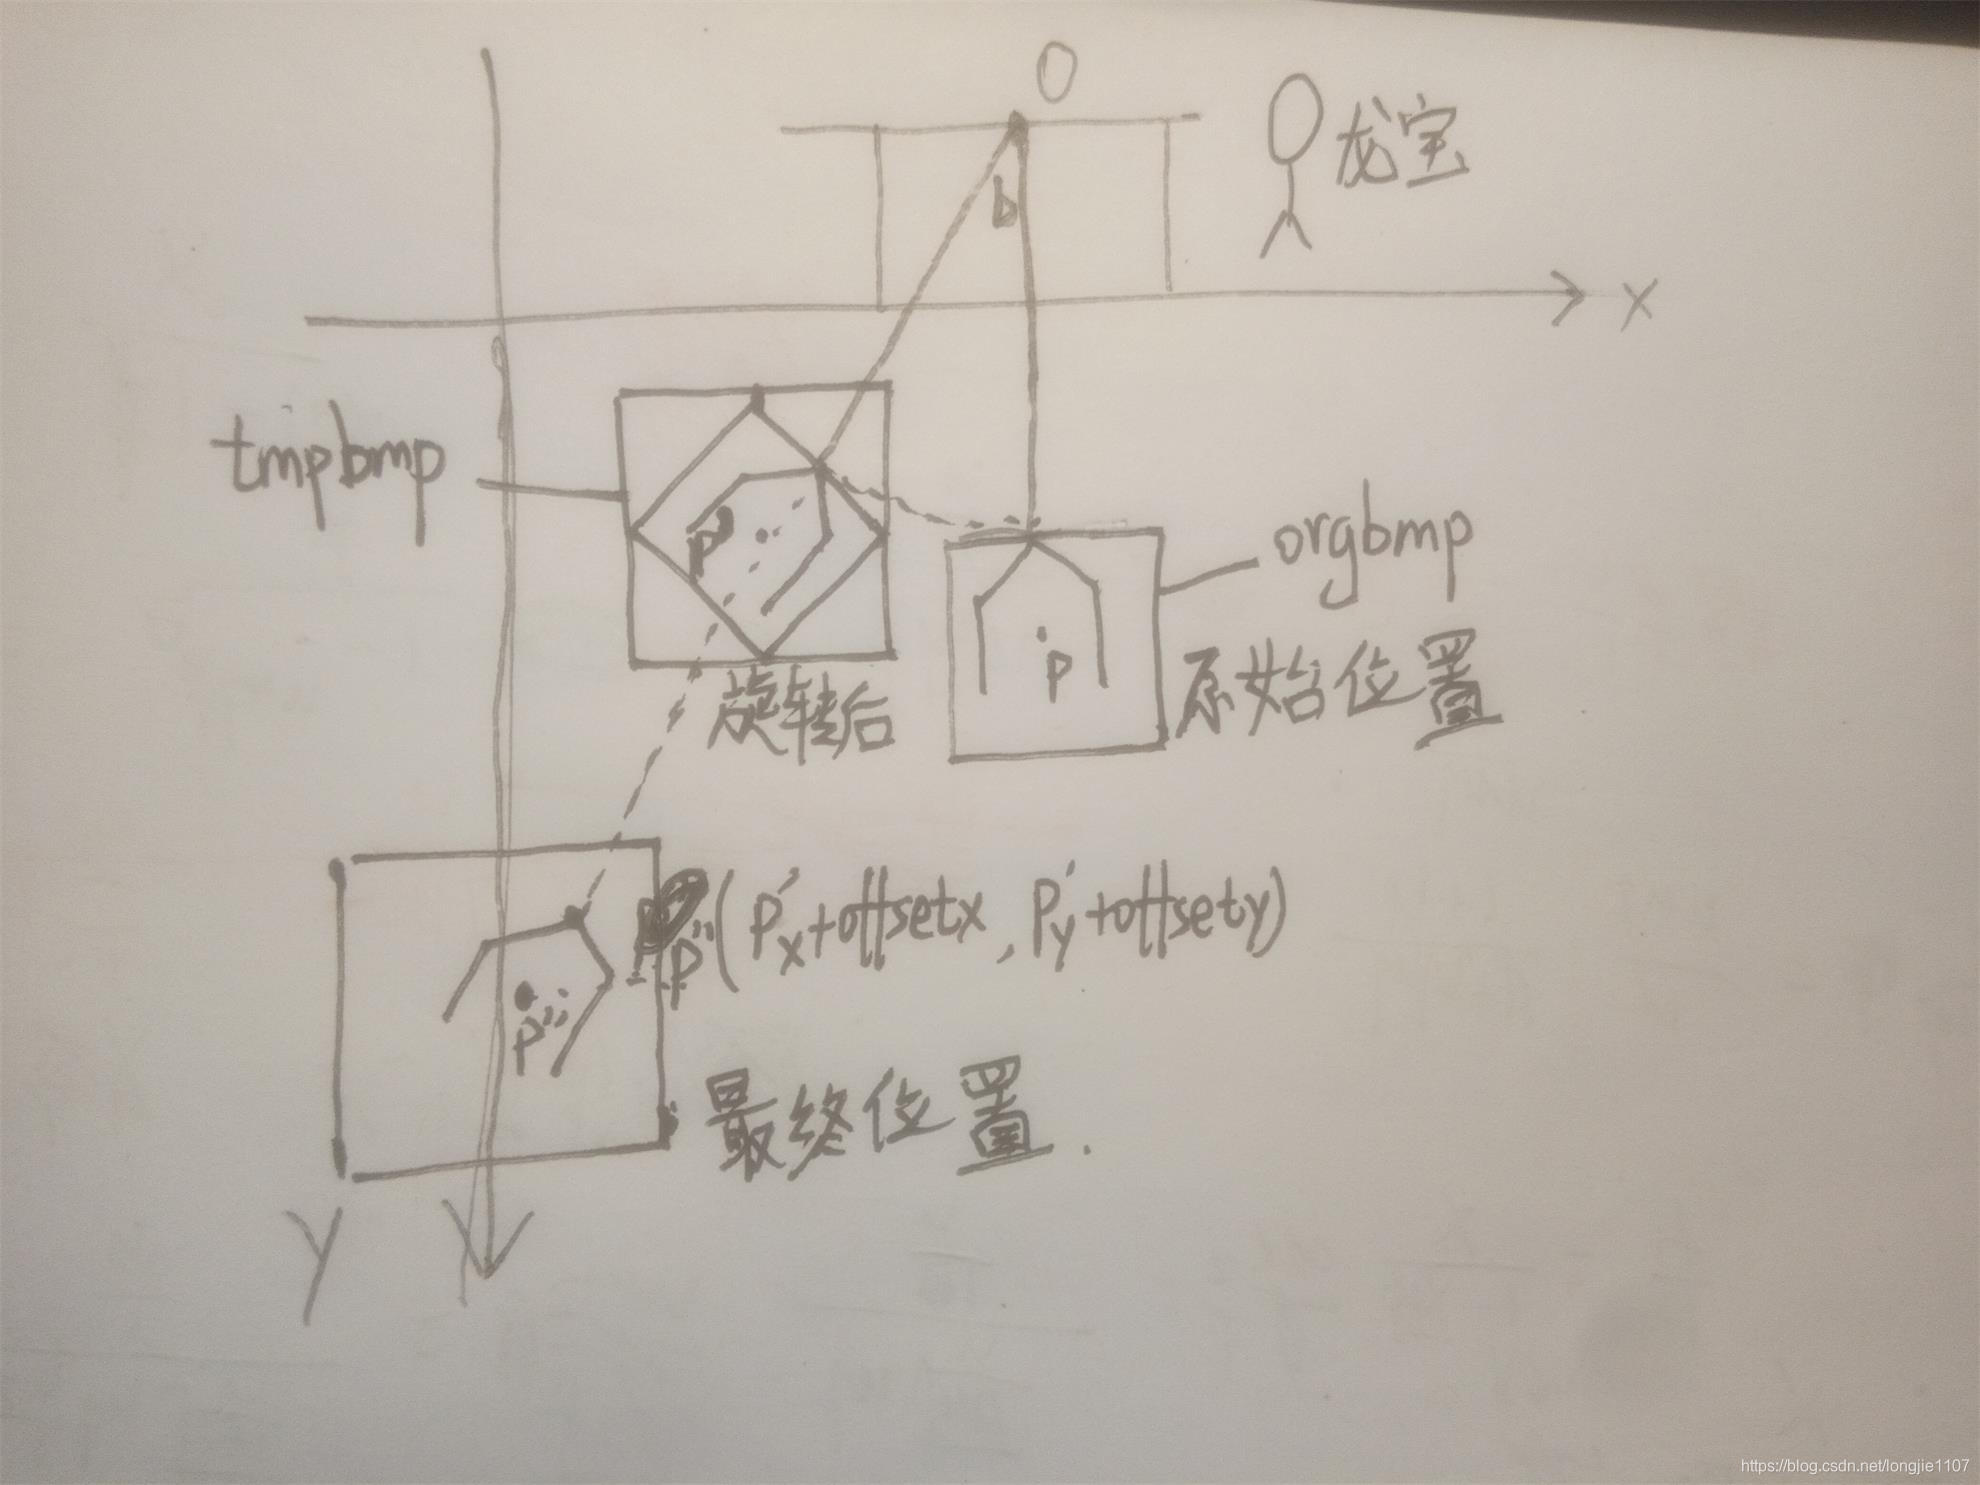 O
龙宝
b
X
tmpbmp
orgbmp
P'
P
旋转后
原始位置
P''(P'x+offsetx, P'y+offsety)
P''
最终位置.
Y
https://blog.csdn.net/longjie1107